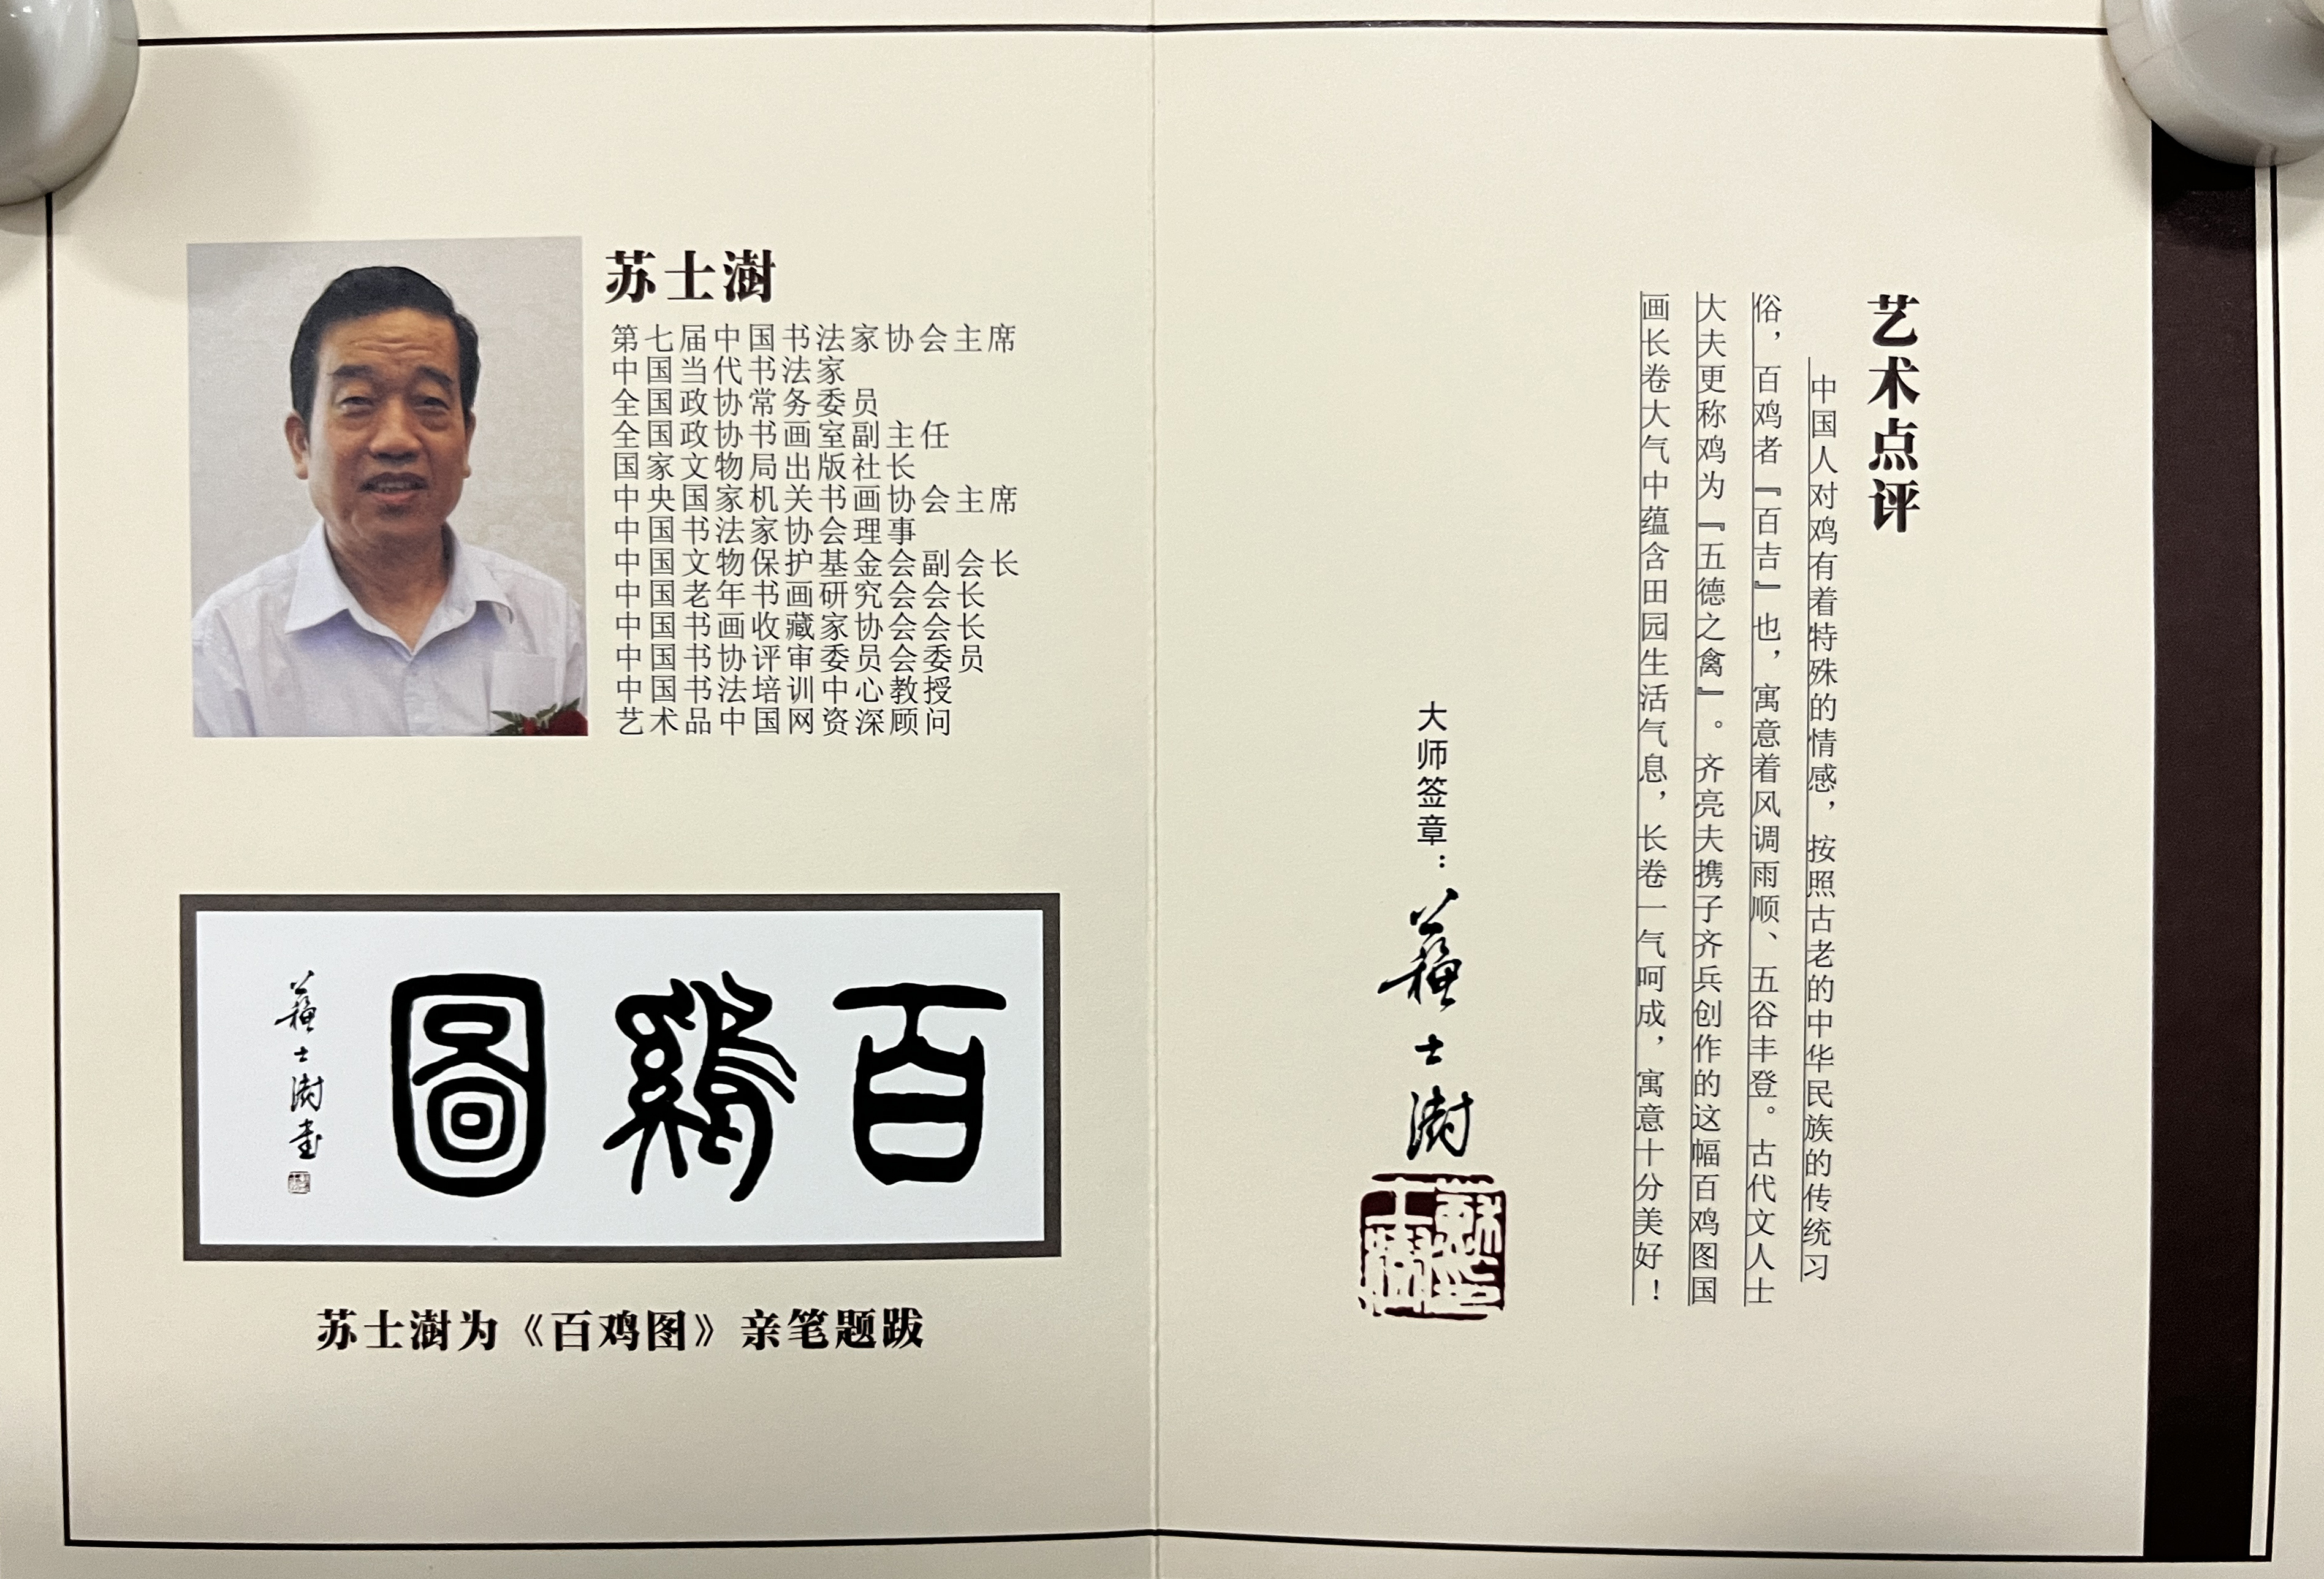 苏士澍
第七届中国书法家协会主席
中国当代书法家
全国政协常务委员
全国政协书画室副主任
国家文物局出版社长
中央国家机关书画协会主席
中国书法家协会理事
中国文物保护基金会副会长
中国老年书画研究会会长
中国书画收藏家协会会长
中国书协评审委员会委员
中国书法培训中心教授
艺术品中国网资深顾问
百鷄圖
蘇士澍書
苏士澍为《百鸡图》亲笔题跋
艺术点评
中国人对鸡有着特殊的情感，按照古老的中华民族的传统习
俗，百鸡者『百吉』也，寓意着风调雨顺、五谷丰登。古代文人士
大夫更称鸡为『五德之禽』。齐亮夫携子齐兵创作的这幅百鸡图国
画长卷大气中蕴含田园生活气息，长卷一气呵成，寓意十分美好！
大师签章：
蘇士澍